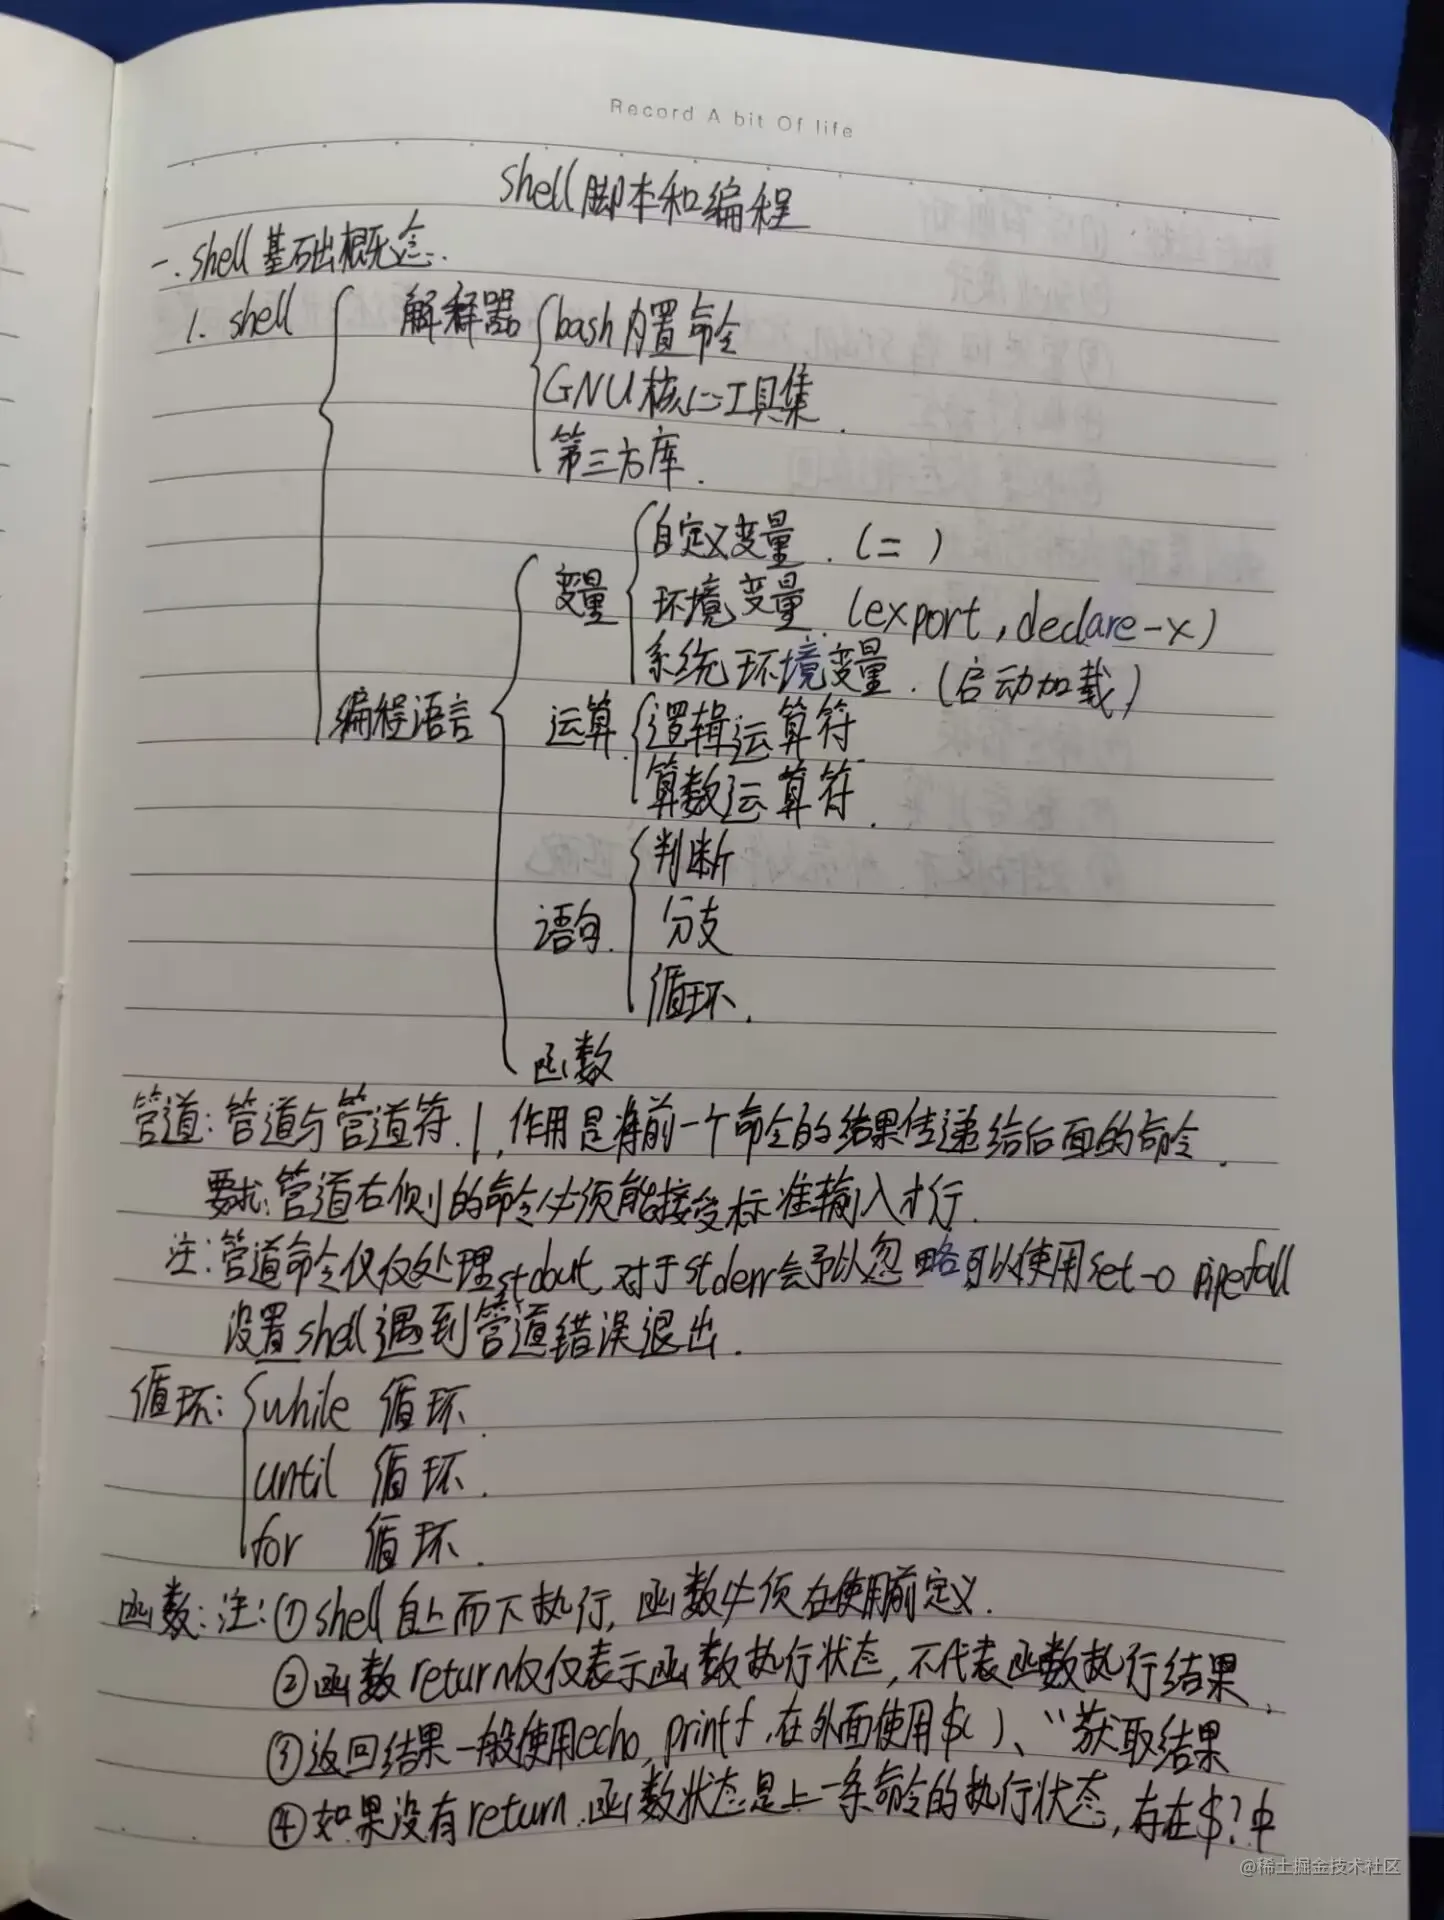 Record A bit Of life
shell脚本和编程
一. shell基础概念.
1. shell
解释器
bash内置命令
GNU核心工具集.
第三方库.
编程语言
变量
自定义变量. (=)
环境变量. (export, declare-x)
系统环境变量. (启动加载)
运算.
逻辑运算符.
算数运算符.
语句.
判断
分支
循环.
函数
管道: 管道与管道符. |, 作用是将前一个命令的结果传递给后面的命令.
要求: 管道右侧的命令必须能接受标准输入才行.
注: 管道命令仅仅处理stdout, 对于stderr会予以忽略可以使用set-o pipefail
设置shell遇到管道错误退出.
循环:
while 循环.
until 循环.
for 循环.
函数: 注: ①shell自上而下执行, 函数必须在使用前定义.
②函数return仅仅表示函数执行状态, 不代表函数执行结果.
③返回结果一般使用echo, printf, 在外面使用$( )、``获取结果
④如果没有return. 函数状态是上一条命令的执行状态, 存在$?中
@稀土掘金技术社区